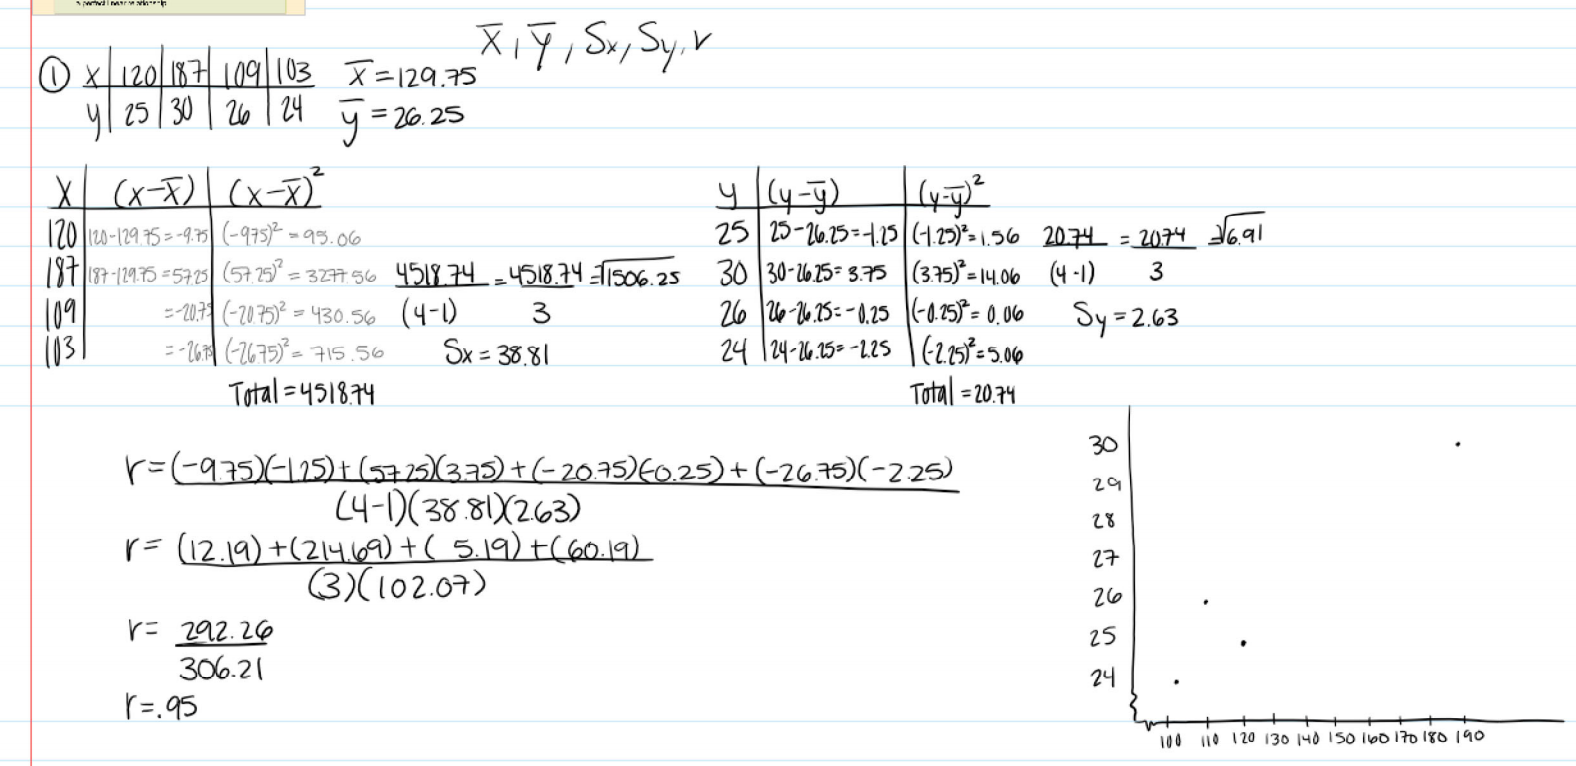 a perfect linear relationship
x̄, ȳ, Sx, Sy, r
① x | 120 | 187 | 109 | 103 x̄ = 129.75
y | 25 | 30 | 26 | 24 ȳ = 26.25
x | (x-x̄) | (x-x̄)²
120 | 120-129.75=-9.75 | (-9.75)²=95.06
187 | 187-129.75=57.25 | (57.25)²=3277.56
109 | =-20.75 | (-20.75)²=430.56
103 | =-26.75 | (-26.75)²=715.56
Total=4518.74
4518.74/(4-1) = 4518.74/3 = √1506.25
Sx=38.81
y | (y-ȳ) | (y-ȳ)²
25 | 25-26.25=-1.25 | (-1.25)²=1.56
30 | 30-26.25=3.75 | (3.75)²=14.06
26 | 26-26.25=-0.25 | (-0.25)²=0.06
24 | 24-26.25=-2.25 | (-2.25)²=5.06
Total=20.74
20.74/(4-1) = 20.74/3 = √6.91
Sy=2.63
r=(-9.75)(-1.25)+(57.25)(3.75)+(-20.75)(-0.25)+(-26.75)(-2.25)
(4-1)(38.81)(2.63)
r=(12.19)+(214.69)+(5.19)+(60.19)
(3)(102.07)
r=292.26
306.21
r=.95
30
29
28
27
26
25
24
100 110 120 130 140 150 160 170 180 190